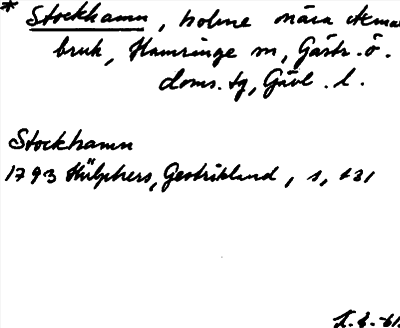 * Stockhamn, holme nära Axmar
bruk, Hamrånge sn, Gästr. ö.
doms.sg, Gävl. l.
Stockhamn
1793 Hülphers, Gestrikland, s, 131